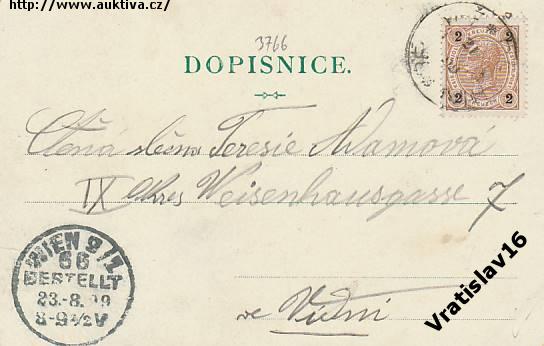 http://www.auktiva.cz/
3766
DOPISNICE.
2 2
2 2
Ctěná slečna Teresie Adamová
IX Okres Weisenhausgasse 7
ve Vídni
WIEN 9/1
66
BESTELLT
23.-8.99
8-9½V
Vratislav16